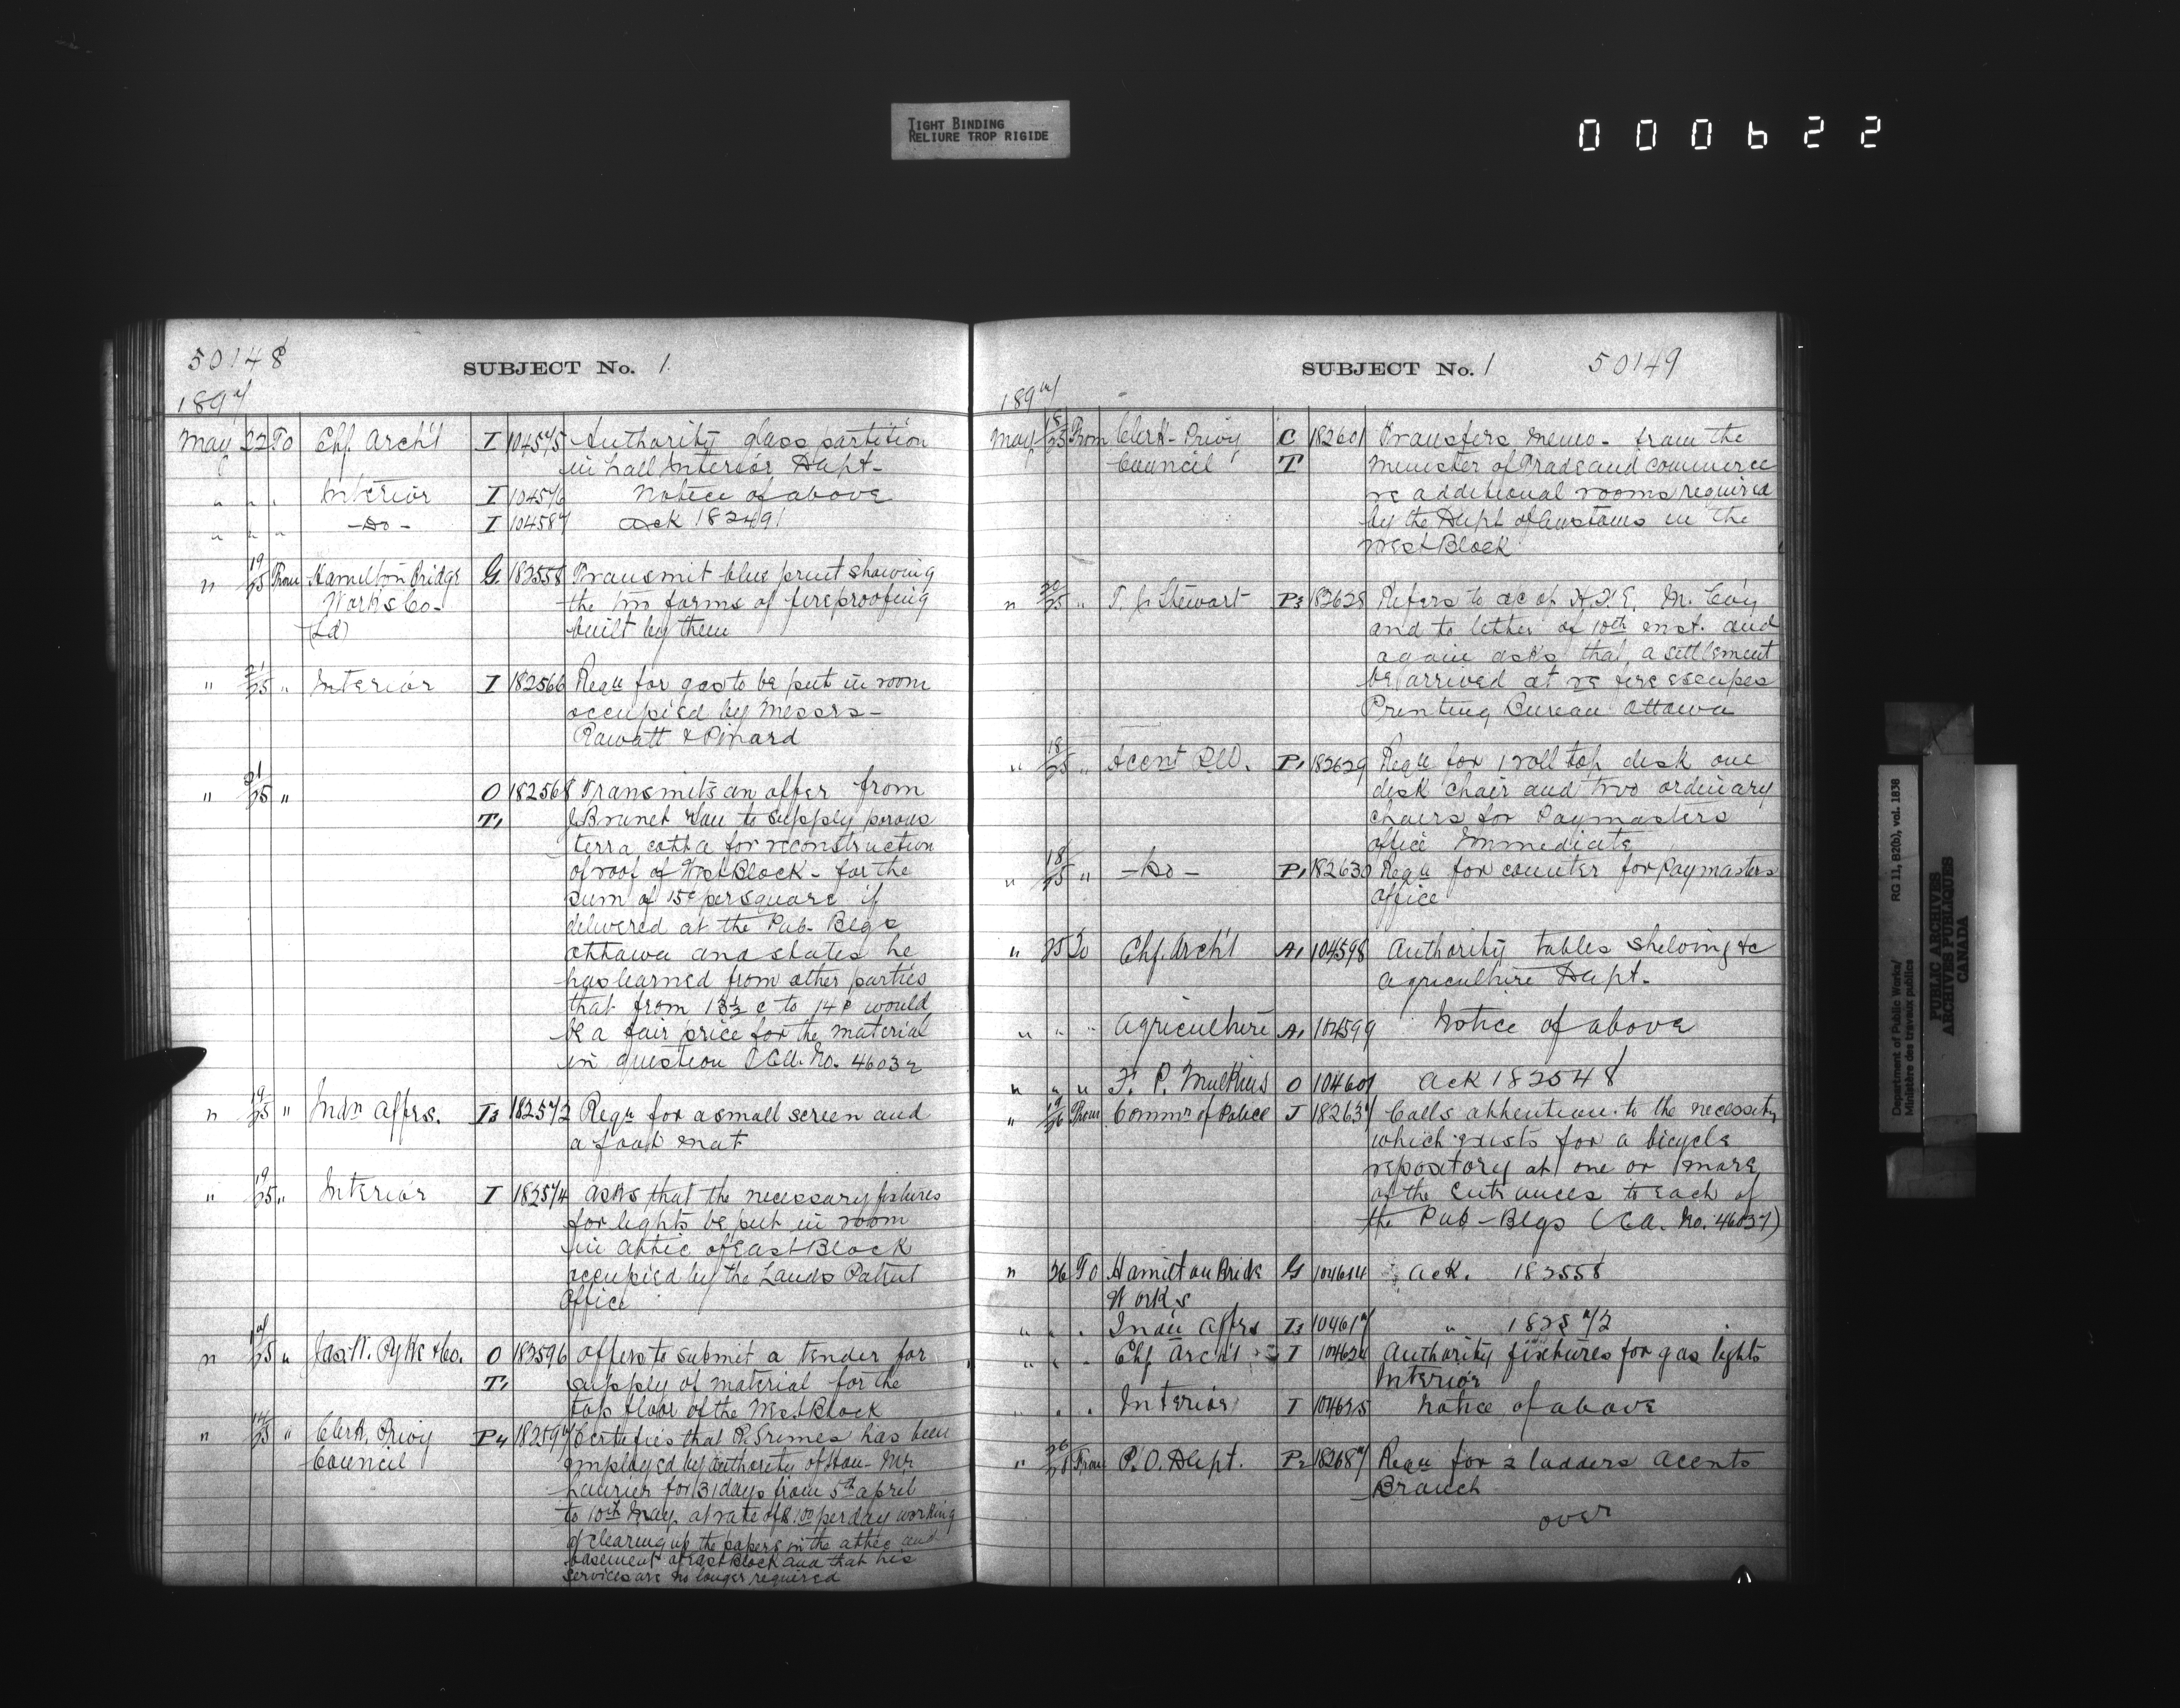 TIGHT BINDING
RELIURE TROP RIGIDE
000622
50148
SUBJECT No. 1.
1897
May 22 To Chf. Arch't I 104575 Authority glass partition
in hall Interior Dept-
" " " Interior I 104576 Notice of above
" " " -Do- I 104587 Ack 182491
" 19/25 From Hamilton Bridge G. 182558 Transmit blue print showing
Works Co- the two forms of fireproofing
(Ld) built by them
" 21/25 " Interior I 182566 Requ for gas to be put in room
occupied by Messrs-
Rowatt & Pinard
" 21/25 " O 182568 Transmits an offer from
T1 J Brunet Wau to supply porous
terra cotta for reconstruction
of roof of West Block- for the
sum of 15¢ per square if
delivered at the Pub- Blgs
Ottawa and states he
has learned from other parties
that from 13½ c to 14¢ would
be a fair price for the material
in question No. 46032
" 19/25 " Indn Affrs. I3 182572 Requ for a small screen and
a foot mat
" 19/25 " Interior I 182574 asks that the necessary fixtures
for lights be put in room
in attic of East Block
occupied by the Lands Patent
Office
" 17/25 " Jas W. Pyke & Co. O 182596 Offers to submit a tender for
T1 supply of material for the
top floor of the West Block
" 14/25 " Clerk, Privy P4 182597 Certifies that P. Grimes has been
Council employed by authority of Hon- Mr
Laurier for 31 days from 5th April
to 10th May, at rate of $1.00 per day working
of clearing up the papers in the attic and
basement of East Block and that his
services are no longer required
SUBJECT No. 1
50149
1897
May 18/25 From Clerk- Privy C 182601 Transfers memo- from the
Council T Minister of Trade and Commerce
re additional rooms required
by the Dept of Customs in the
West Block
" 20/25 " T. J. Stewart P3 182628 Refers to a/c of H. F. E. McCoy
and to letter of 10th inst. and
again asks that, a settlement
be arrived at re fire escapes
Printing Bureau Ottawa
" 18/25 " Accnt P.W. P1 182629 Requ for 1 roll top desk one
desk chair and two ordinary
chairs for Paymasters
office Immediate
" 18/25 " -Do- P1 182630 Requ for counter for Paymasters
office
" 25 To Chf. Arch't A1 104598 Authority tables shelving &c
Agriculture Dept.
" " " Agriculture A1 104599 Notice of above
" " " F. P. Mulkins O 104601 Ack 182548
" 19/26 From Commr of Police J 182637 Calls attention to the necessity
which exists for a bicycle
repository at one or more
of the entrances to each of
the Pub-Blgs (Ca. No. 46037)
" 26 To Hamilton Brick G 104614 Ack. 182558
Works
" " " Indn Affrs I3 104617 " 182572
" " " Chf Arch't I 104624 Authority fixtures for gas lights
Interior
" " " Interior I 104625 Notice of above
" 26/28 From P.O. Dept. P2 182687 Requ for 2 ladders Accnts
Branch
over
Department of Public Works/ RG 11, B2(b), vol. 1838
Ministère des travaux publics
PUBLIC ARCHIVES
ARCHIVES PUBLIQUES
CANADA